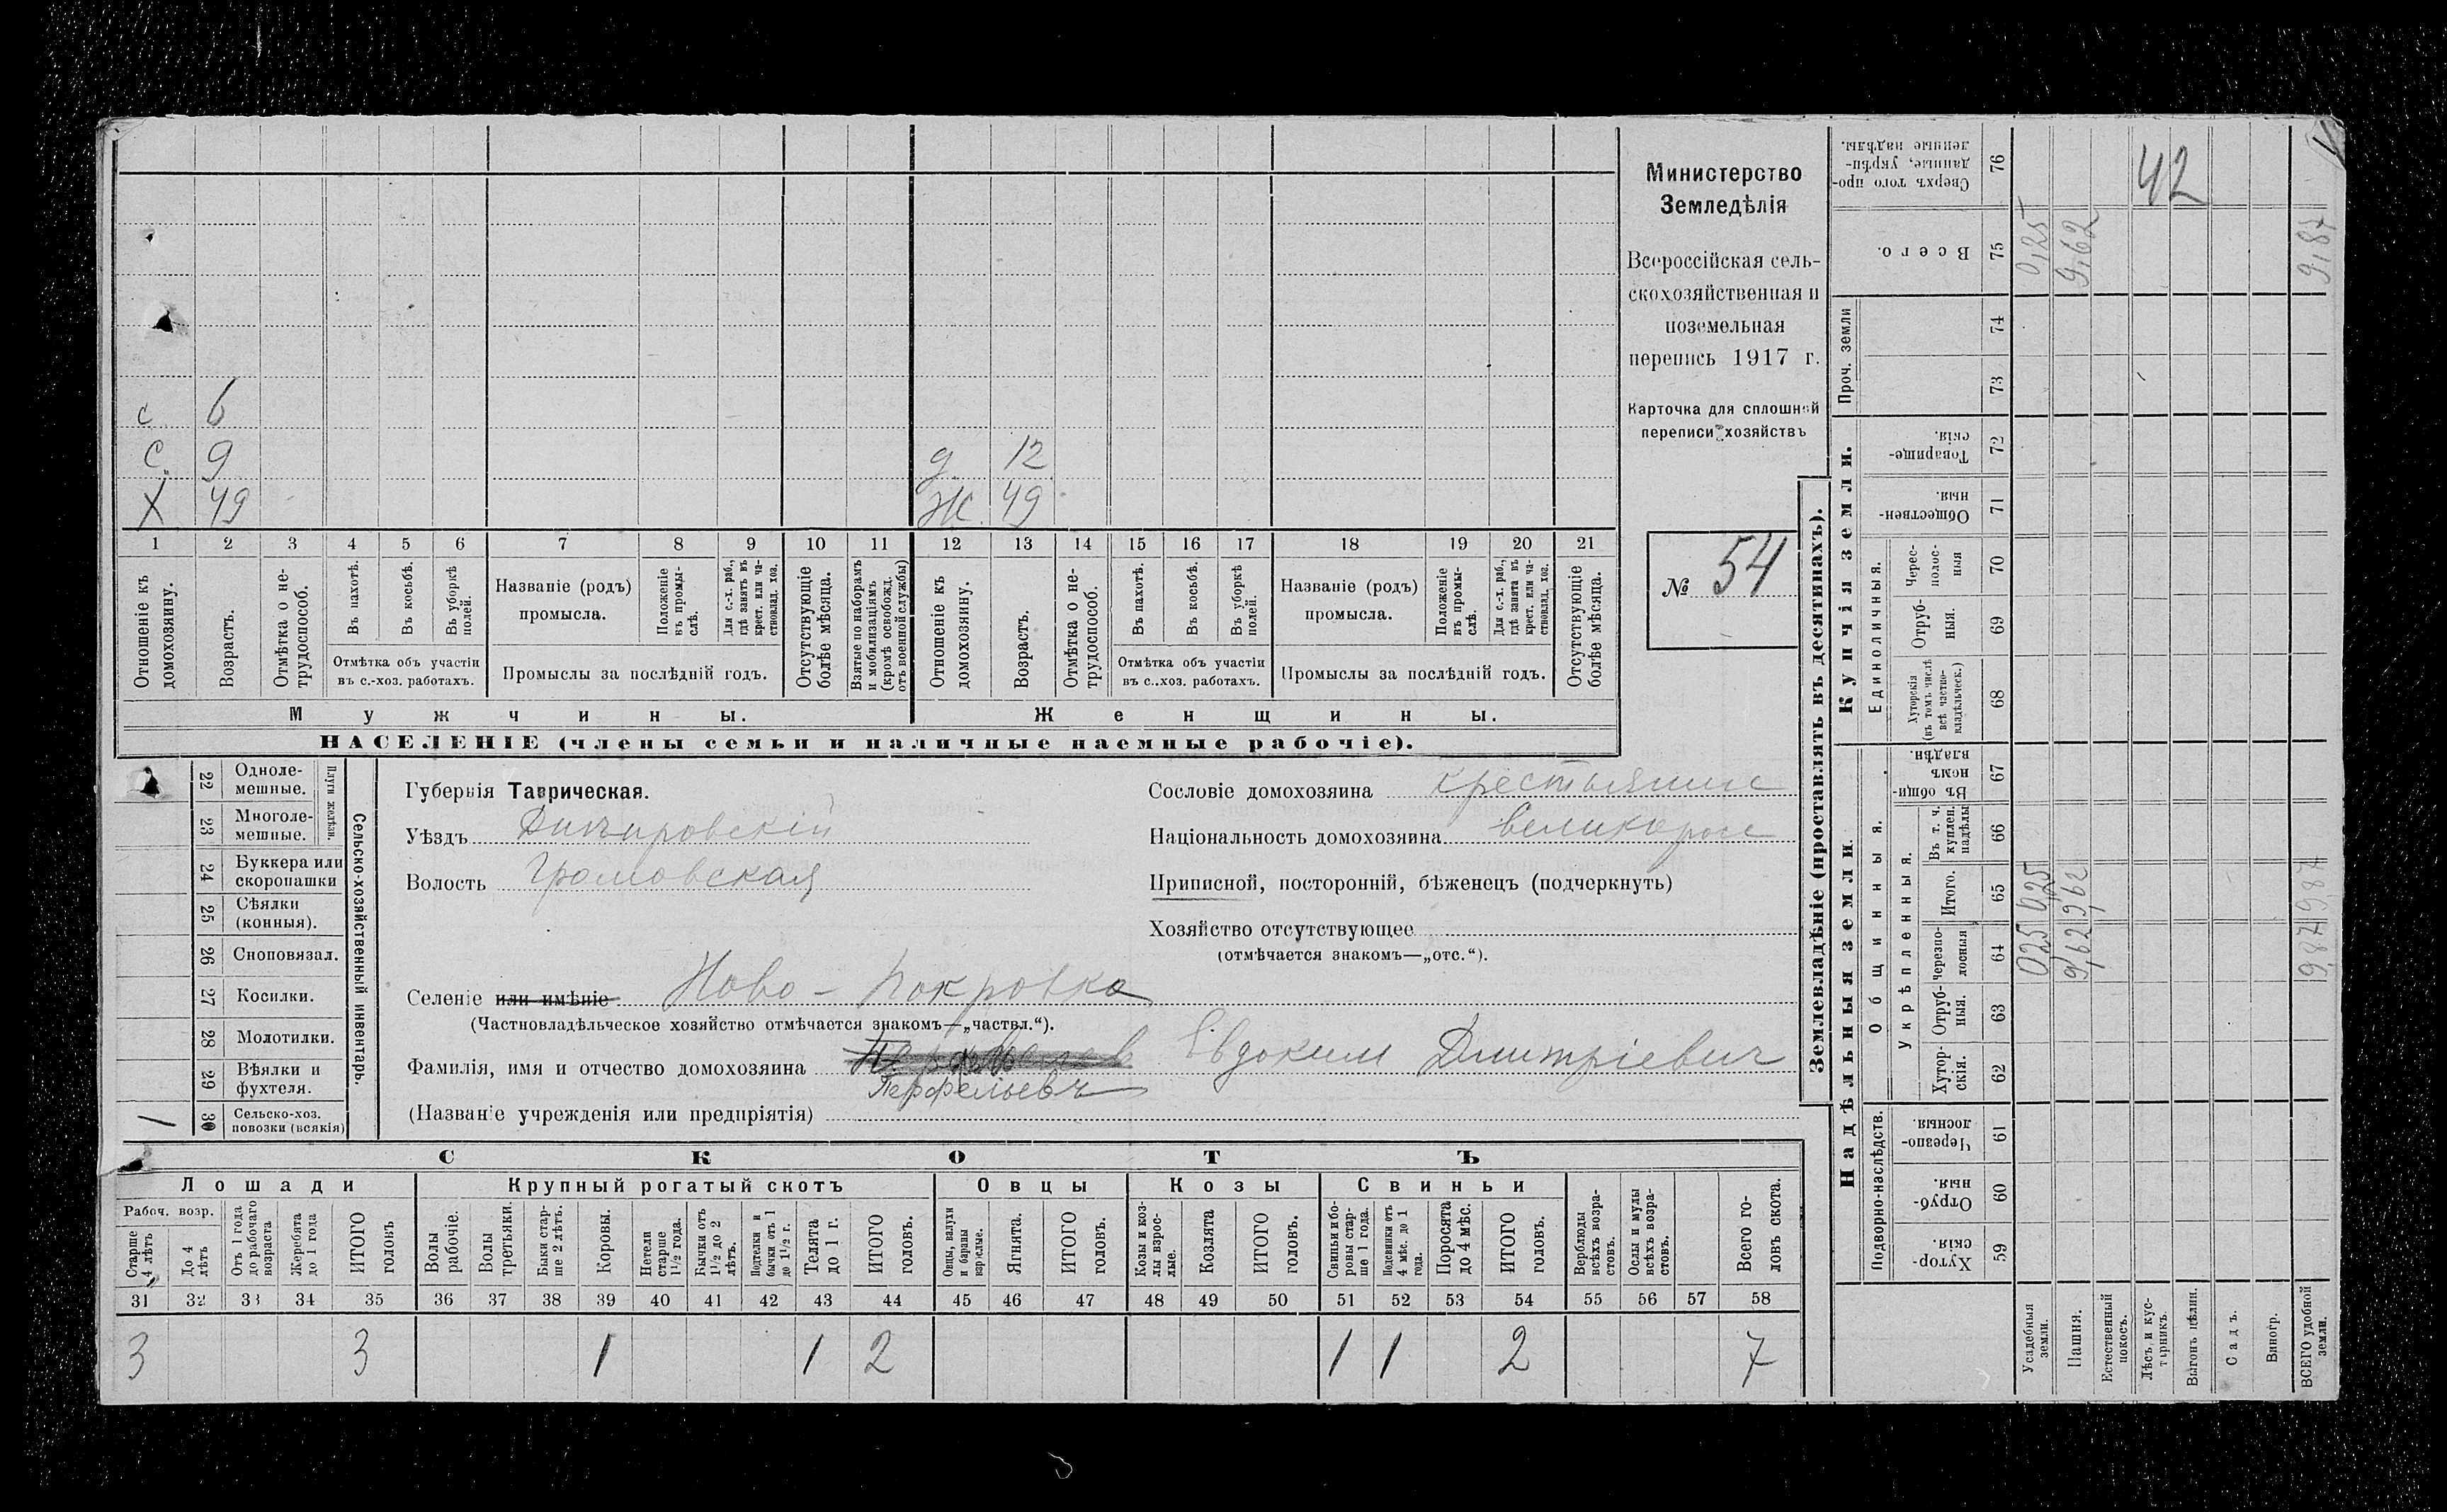 с 6
С. 9
Х 49
д 12
Ж. 49
1 2 3 4 5 6 7 8 9 10 11 12 13 14 15 16 17 18 19 20 21
Отношеніе къ домохозяину.
Возрастъ.
Отмѣтка о не-трудоспособ.
Въ пахотѣ.
Въ косьбѣ.
Въ уборкѣ полей.
Отмѣтка объ участіи
въ с.-хоз. работахъ.
Названіе (родъ)
промысла.
Положеніе въ промы-слѣ.
Для с.-х. раб., гдѣ занятъ въ крест. или ча-ствовлад. хоз.
Промыслы за послѣдній годъ.
Отсутствующіе болѣе мѣсяца.
Взятые по наборамъ и мобилизаціямъ (кромѣ освобожд. отъ военной службы)
Отношеніе къ домохозяину.
Возрастъ.
Отмѣтка о не-трудоспособ.
Въ пахотѣ.
Въ косьбѣ.
Въ уборкѣ полей.
Отмѣтка объ участіи
въ с..хоз. работахъ.
Названіе (родъ)
промысла.
Положеніе въ промы-слѣ.
Для с.-х. раб., гдѣ занята въ крест. или ча-ствовлад. хоз.
Промыслы за послѣдній годъ.
Отсутствующіе болѣе мѣсяца.
Мужчины.
Женщины.
НАСЕЛЕНІЕ (члены семьи и наличные наемные рабочіе).
Министерство
Земледѣлія
Всероссійская сель-
скохозяйственная и
поземельная
перепись 1917 г.
Карточка для сплошной
переписи хозяйствъ
№ 54
Сельско-хозяйственный инвентарь.
Плуги желѣзн.
22 Одноле-
мешные.
23 Многоле-
мешные.
24 Буккера или
скоропашки
25 Сѣялки
(конныя).
26 Сноповязал.
27 Косилки.
28 Молотилки.
29 Вѣялки и
фухтеля.
1 30 Сельско-хоз.
повозки (всякія)
Губернія Таврическая.
Уѣздъ Днѣпровскій
Волость Громовская
Селеніе или имѣніе Ново-Покровка
(Частновладѣльческое хозяйство отмѣчается знакомъ—„частвл.“).
Фамилія, имя и отчество домохозяина Евдоким Дмитріевич
Перфельевъ
(Названіе учрежденія или предпріятія)
Сословіе домохозяина крестьянин
Національность домохозяина великорос
Приписной, посторонній, бѣженецъ (подчеркнуть)
Хозяйство отсутствующее
(отмѣчается знакомъ—„отс.“).
СКОТЪ
Лошади
Рабоч. возр.
Старше 4 лѣтъ
До 4 лѣтъ
Отъ 1 года до рабочаго возраста
Жеребята до 1 года
ИТОГО головъ
Крупный рогатый скотъ
Волы рабочіе.
Волы третьяки.
Быки стар-ше 2 лѣтъ.
Коровы.
Нетели старше 1 1/2 года.
Бычки отъ 1 1/2 до 2 лѣтъ.
Подтелки и бычки отъ 1 до 1 1/2 г.
Телята до 1 г.
ИТОГО головъ.
Овцы
Овцы, валухи и бараны взрослые.
Ягнята.
ИТОГО головъ.
Козы
Козы и коз-лы взрос-лые.
Козлята
ИТОГО головъ.
Свиньи
Свиньи и бо-ровы стар-ше 1 года.
Подсвинки отъ 4 мѣс. до 1 года.
Поросята до 4 мѣс.
ИТОГО головъ.
Верблюды всѣхъ возра-стовъ.
Ослы и мулы всѣхъ возра-стовъ.
Всего го-ловъ скота.
31 32 33 34 35 36 37 38 39 40 41 42 43 44 45 46 47 48 49 50 51 52 53 54 55 56 57 58
3 3 1 1 2 1 1 2 7
Землевладѣніе (проставлять въ десятинахъ).
Надѣльныя земли.
Купчія земли.
Подворно-наслѣдств.
Хутор-скія. 59
Отруб-ныя. 60
Черезпо-лосныя. 61
Общинныя.
Укрѣпленныя.
Хутор-скія. 62
Отруб-ныя. 63
Черезпо-лосныя 64
Итого. 65
Въ т. ч. куплен. надѣлы 66
Въ общи-номъ владѣн. 67
Единоличныя.
Хуторскія (въ томъ числѣ всѣ частно-владѣльческ.) 68
Отруб-ныя. 69
Черес-полос-ныя 70
Обществен-ныя. 71
Товарище-скія. 72
Проч. земли 73 74
Всего. 75
Сверхъ того про-данные, укрѣп-ленные надѣлы. 76
Усадебныя земли. 0,25 0,25 0,25
Пашня. 9,62 9,62 9,62
Естественный покосъ.
Лѣсъ и кус-тарникъ.
Выгонъ цѣлин.
Садъ.
Виногр.
ВСЕГО удобной земли. 9,87 9,87 9,87
42